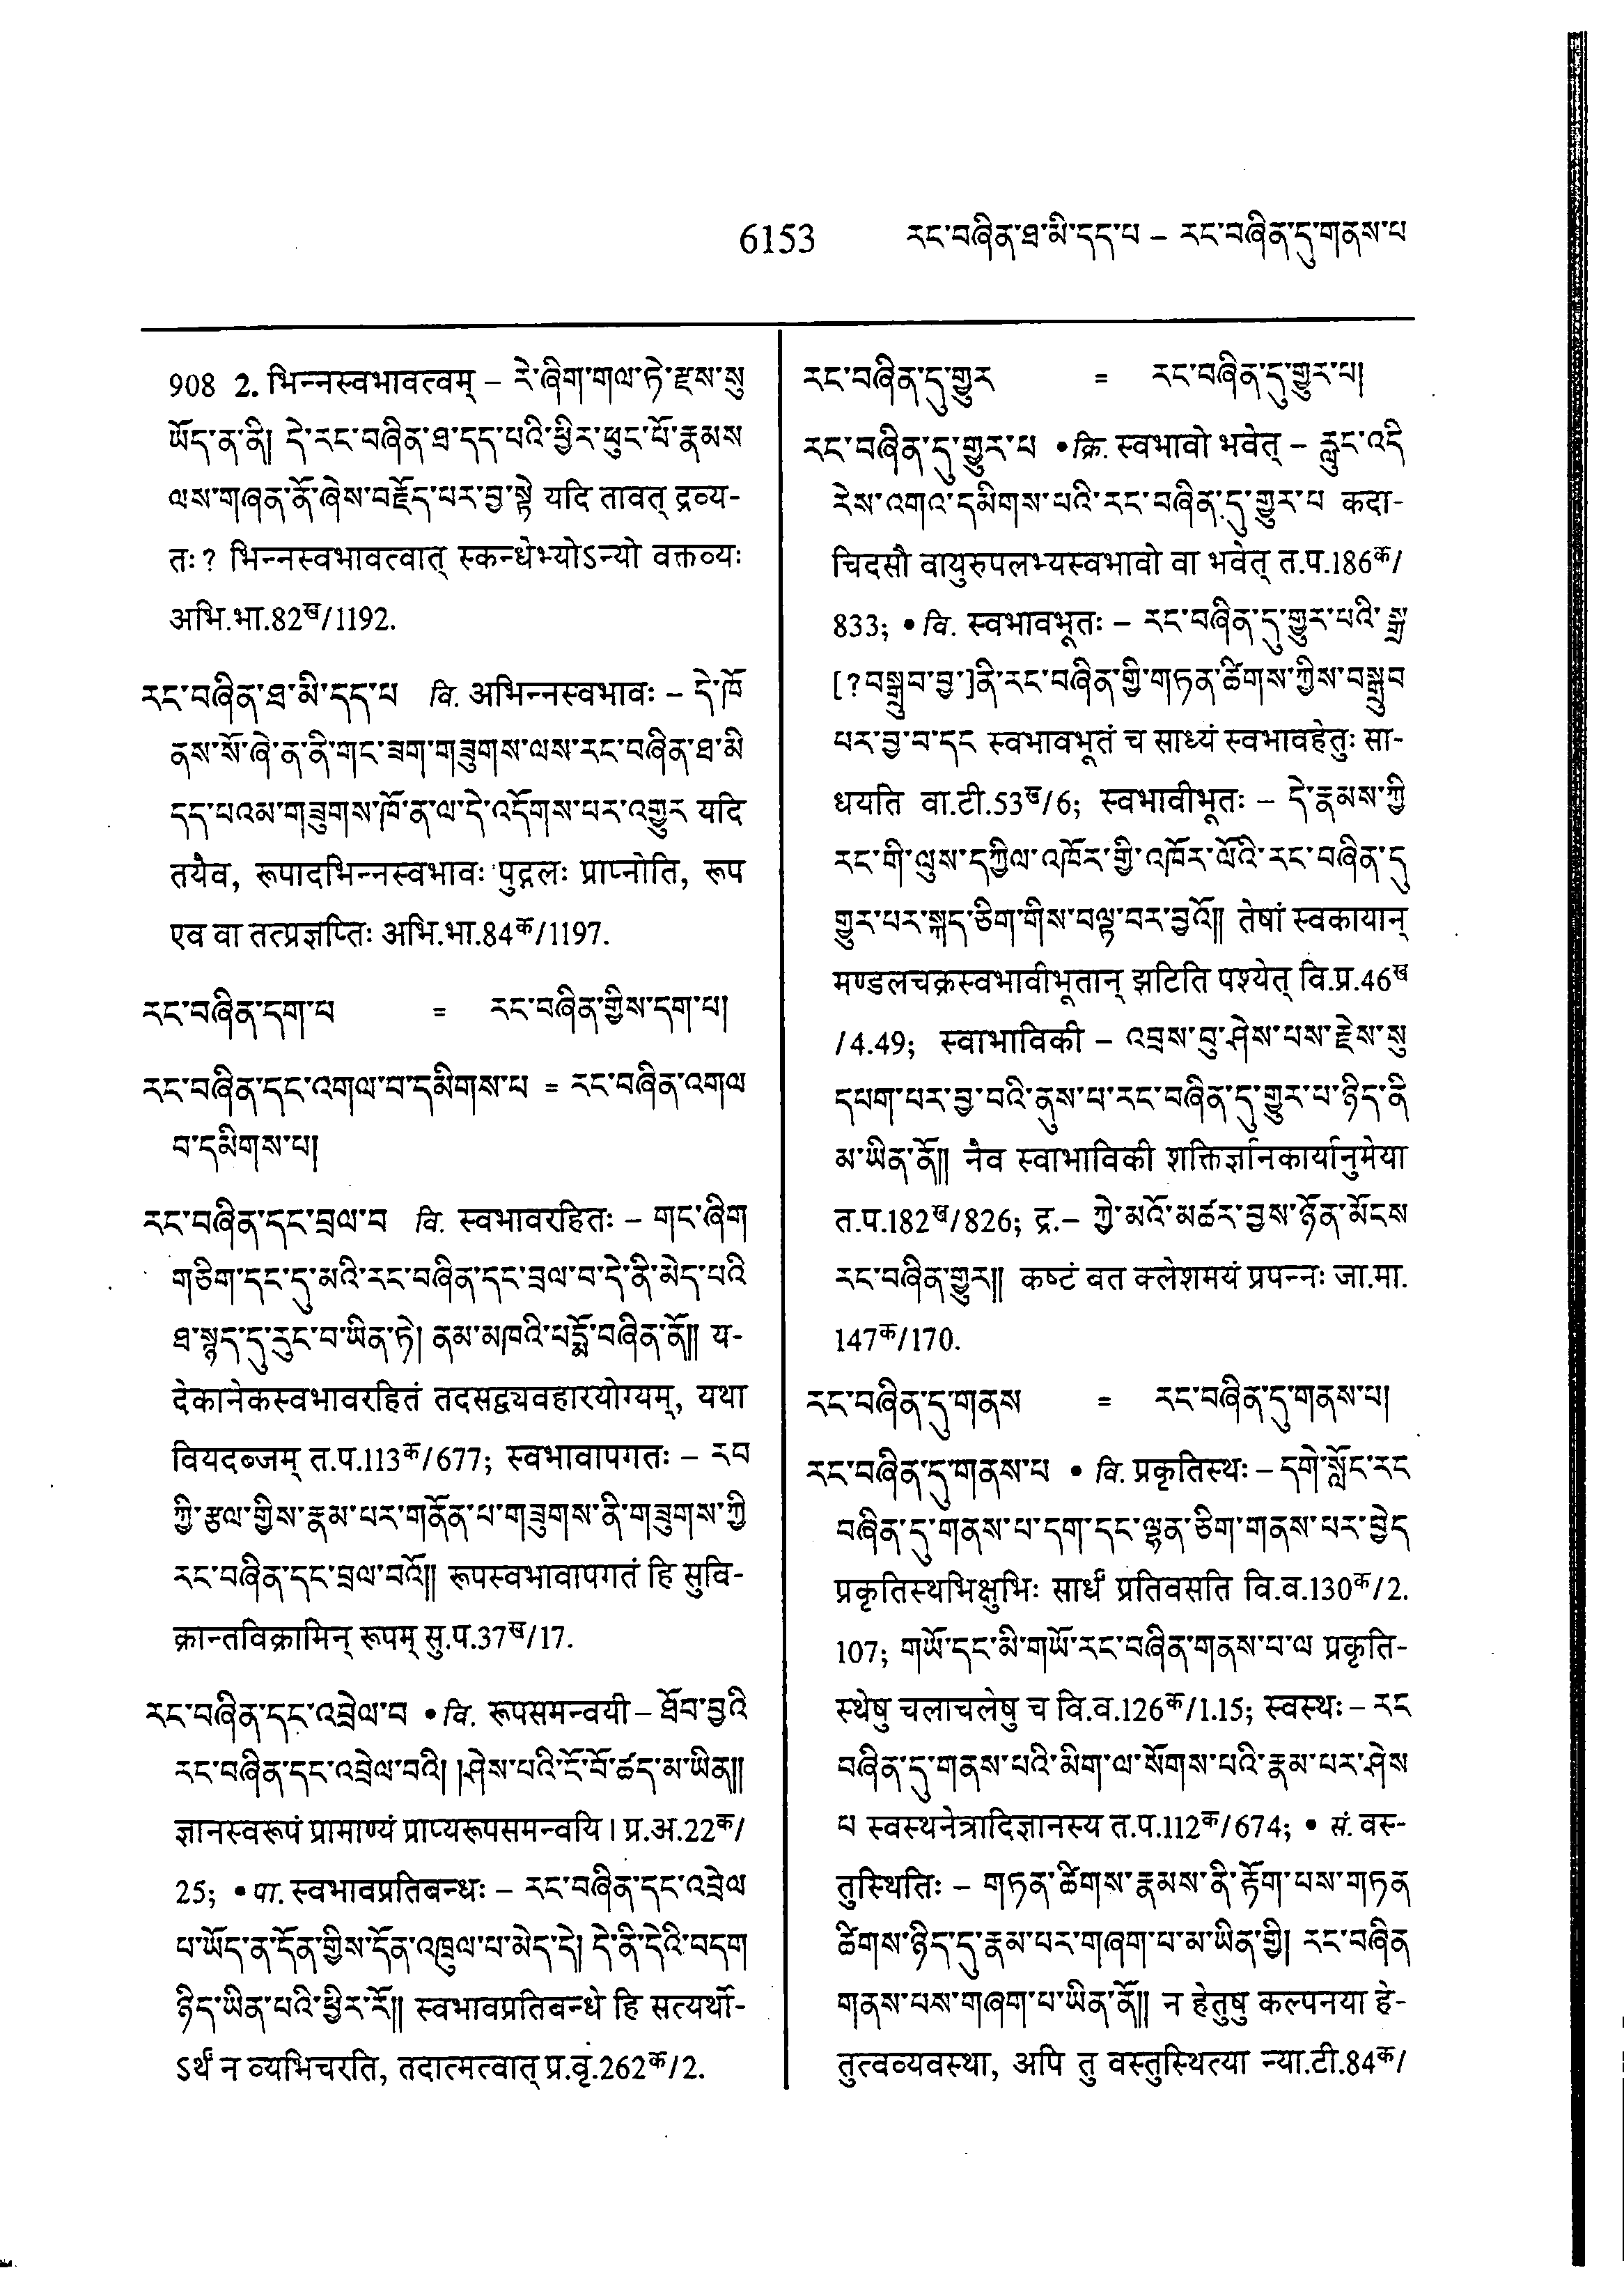 6153 རང་བཞིན་ཐ་མི་དད་པ – རང་བཞིན་དུ་གནས་པ
908 2. भिन्नस्वभावत्वम् – རེ་ཞིག་གལ་ཏེ་རྫས་སུ
ཡོད་ན་ནི། དེ་རང་བཞིན་ཐ་དད་པའི་ཕྱིར་ཕུང་པོ་རྣམས
ལས་གཞན་ནོ་ཞེས་བརྗོད་པར་བྱ་སྟེ यदि तावत् द्रव्य-
तः? भिन्नस्वभावत्वात् स्कन्धेभ्योऽन्यो वक्तव्यः
अभि.भा.82ख/1192.
རང་བཞིན་ཐ་མི་དད་པ वि. अभिन्नस्वभावः – དེ་ཁོ
ནས་སོ་ཞེ་ན་ནི་གང་ཟག་གཟུགས་ལས་རང་བཞིན་ཐ་མི
དད་པའམ་གཟུགས་ཁོ་ན་ལ་དེ་འདོགས་པར་འགྱུར यदि
तयैव, रूपादभिन्नस्वभावः पुद्गलः प्राप्नोति, रूप
एव वा तत्प्रज्ञप्तिः अभि.भा.84क/1197.
རང་བཞིན་དག་པ = རང་བཞིན་གྱིས་དག་པ།
རང་བཞིན་དང་འགལ་བ་དམིགས་པ = རང་བཞིན་འགལ
བ་དམིགས་པ།
རང་བཞིན་དང་བྲལ་བ वि. स्वभावरहितः – གང་ཞིག
གཅིག་དང་དུ་མའི་རང་བཞིན་དང་བྲལ་བ་དེ་ནི་མེད་པའི
ཐ་སྙད་དུ་རུང་བ་ཡིན་ཏེ། ནམ་མཁའི་པདྨོ་བཞིན་ནོ།། य-
देकानेकस्वभावरहितं तदसद्व्यवहारयोग्यम्, यथा
वियदब्जम् त.प.113क/677; स्वभावापगतः – རབ
ཀྱི་རྩལ་གྱིས་རྣམ་པར་གནོན་པ་གཟུགས་ནི་གཟུགས་ཀྱི
རང་བཞིན་དང་བྲལ་བའོ།། रूपस्वभावापगतं हि सुवि-
क्रान्तविक्रामिन् रूपम् सु.प.37ख/17.
རང་བཞིན་དང་འབྲེལ་བ • वि. रूपसमन्वयी – ཐོབ་བྱའི
རང་བཞིན་དང་འབྲེལ་བའི། །ཤེས་པའི་ངོ་བོ་ཚད་མ་ཡིན།།
ज्ञानस्वरूपं प्रामाण्यं प्राप्यरूपसमन्वयि। प्र.अ.22क/
25; • पा. स्वभावप्रतिबन्धः – རང་བཞིན་དང་འབྲེལ
པ་ཡོད་ན་དོན་གྱིས་དོན་འཁྲུལ་པ་མེད་དེ། དེ་ནི་དེའི་བདག
ཉིད་ཡིན་པའི་ཕྱིར་རོ།། स्वभावप्रतिबन्धे हि सत्यर्थो-
ऽर्थं न व्यभिचरति, तदात्मत्वात् प्र.वृ.262क/2.
རང་བཞིན་དུ་གྱུར = རང་བཞིན་དུ་གྱུར་པ།
རང་བཞིན་དུ་གྱུར་པ • क्रि. स्वभावो भवेत् – རླུང་འདི
རེས་འགའ་དམིགས་པའི་རང་བཞིན་དུ་གྱུར་པ कदा-
चिदसौ वायुरुपलभ्यस्वभावो वा भवेत् त.प.186क/
833; • वि. स्वभावभूतः – རང་བཞིན་དུ་གྱུར་པའི་སྒྲ
[?བསྒྲུབ་བྱ་]ནི་རང་བཞིན་གྱི་གཏན་ཚིགས་ཀྱིས་བསྒྲུབ
པར་བྱ་བ་དང स्वभावभूतं च साध्यं स्वभावहेतुः सा-
धयति वा.टी.53ख/6; स्वभावीभूतः – དེ་རྣམས་ཀྱི
རང་གི་ལུས་དཀྱིལ་འཁོར་གྱི་འཁོར་ལོའི་རང་བཞིན་དུ
གྱུར་པར་སྐད་ཅིག་གིས་བལྟ་བར་བྱའོ།། तेषां स्वकायान्
मण्डलचक्रस्वभावीभूतान् झटिति पश्येत् वि.प्र.46ख
/4.49; स्वाभाविकी – འབྲས་བུ་ཤེས་པས་རྗེས་སུ
དཔག་པར་བྱ་བའི་ནུས་པ་རང་བཞིན་དུ་གྱུར་པ་ཉིད་ནི
མ་ཡིན་ནོ།། नैव स्वाभाविकी शक्तिर्ज्ञानकार्यानुमेया
त.प.182ख/826; द्र.– ཀྱེ་མའོ་མཚར་བྱས་ཉོན་མོངས
རང་བཞིན་གྱུར།། कष्टं बत क्लेशमयं प्रपन्नः जा.मा.
147क/170.
རང་བཞིན་དུ་གནས = རང་བཞིན་དུ་གནས་པ།
རང་བཞིན་དུ་གནས་པ • वि. प्रकृतिस्थः – དགེ་སློང་རང
བཞིན་དུ་གནས་པ་དག་དང་ལྷན་ཅིག་གནས་པར་བྱེད
प्रकृतिस्थभिक्षुभिः सार्धं प्रतिवसति वि.व.130क/2.
107; གཡོ་དང་མི་གཡོ་རང་བཞིན་གནས་པ་ལ प्रकृति-
स्थेषु चलाचलेषु च वि.व.126क/1.15; स्वस्थः – རང
བཞིན་དུ་གནས་པའི་མིག་ལ་སོགས་པའི་རྣམ་པར་ཤེས
པ स्वस्थनेत्रादिज्ञानस्य त.प.112क/674; • सं. वस्-
तुस्थितिः – གཏན་ཚིགས་རྣམས་ནི་རྟོག་པས་གཏན
ཚིགས་ཉིད་དུ་རྣམ་པར་གཞག་པ་མ་ཡིན་གྱི། རང་བཞིན
གནས་པས་གཞག་པ་ཡིན་ནོ།། न हेतुषु कल्पनया हे-
तुत्वव्यवस्था, अपि तु वस्तुस्थित्या न्या.टी.84क/